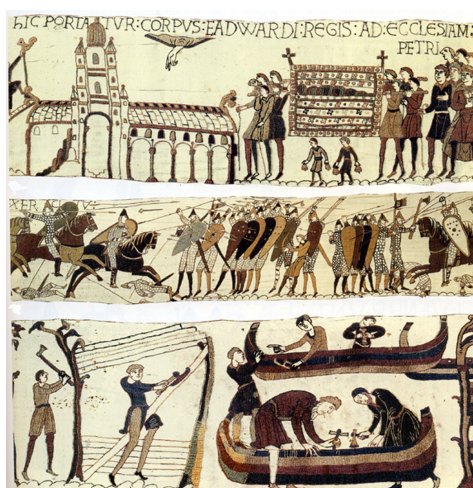 hIC PORTATVR:CORPVS:EADWARDI:REGIS:AD:ECCLESIAM:
PETRI
XER